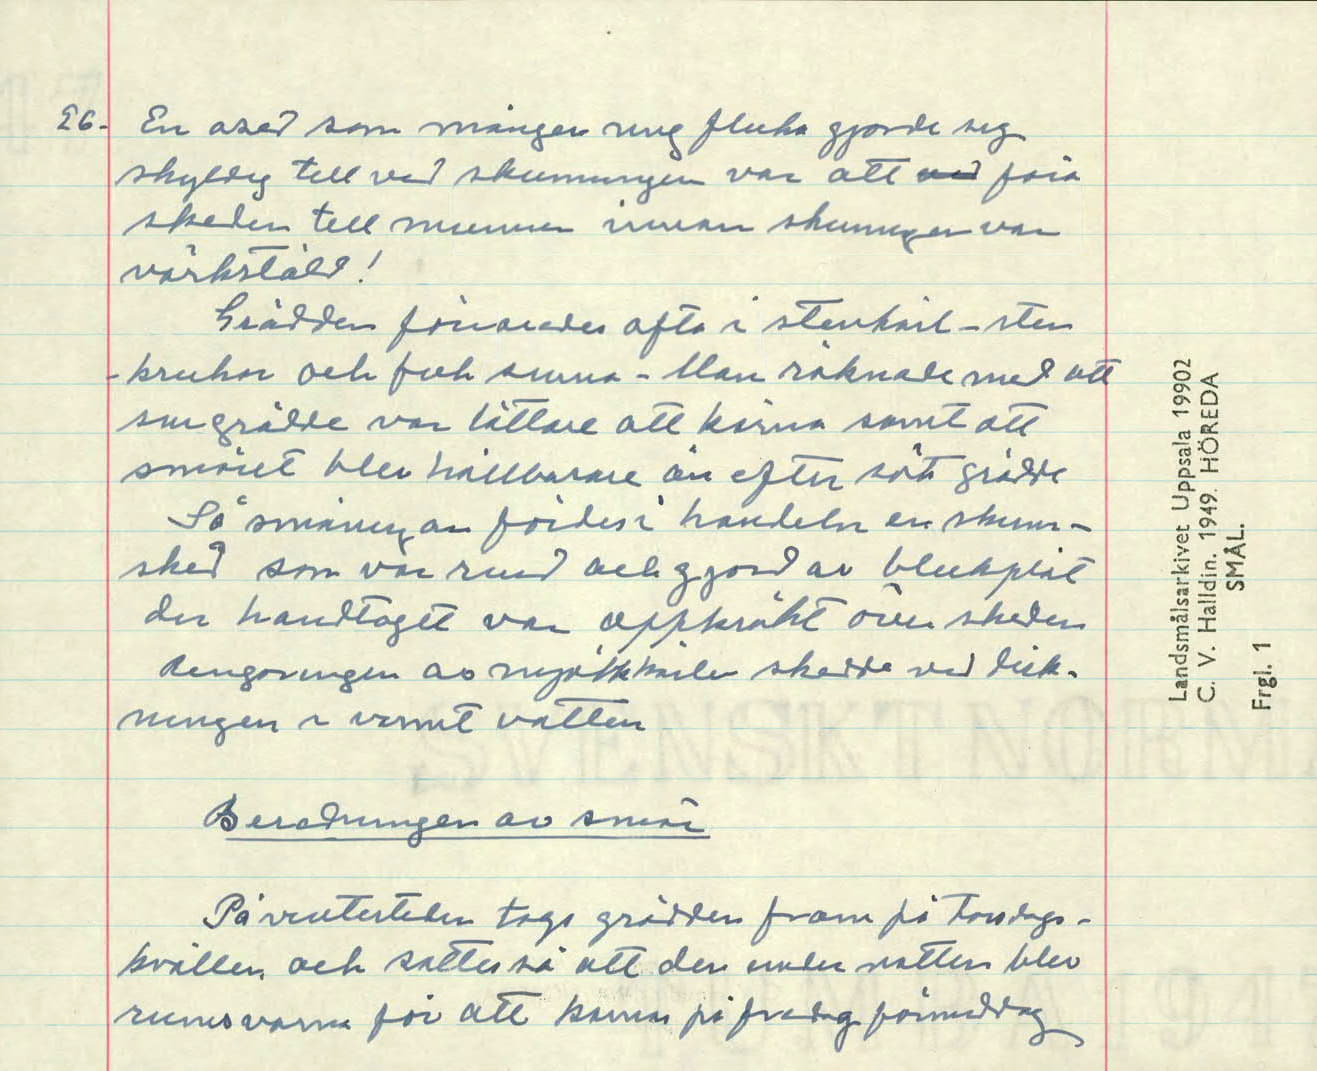 26. En osed som mången ung flicka gjorde sig
skyldig till vid skumningen var att ved föra
skeden till munnen innan skumningen var
värkstäld!
Grädden förvarades ofta i stenkärl - sten
-krukor och fick surna - Man räknade med att
sur grädde var lättare att kärna samt att
smöret blev hållbarare än efter söt grädde
Så småningom fördes i handeln en skum-
sked som var rund och gjord av bleckplåt
der handtaget var uppkrökt över skeden
Rengöringen av mjölkkärlen skedde ved disk-
ningen i varmt vatten
Beredningen av smör
På vintertiden togs grädden fram på torsdags-
kvällen och sattes så att den under natten blev
rumsvarm för att kärnas på fredag förmiddag
Landsmålsarkivet Uppsala 19902
C. V. Halldin. 1949. HÖREDA
SMÅL.
Frgl. 1